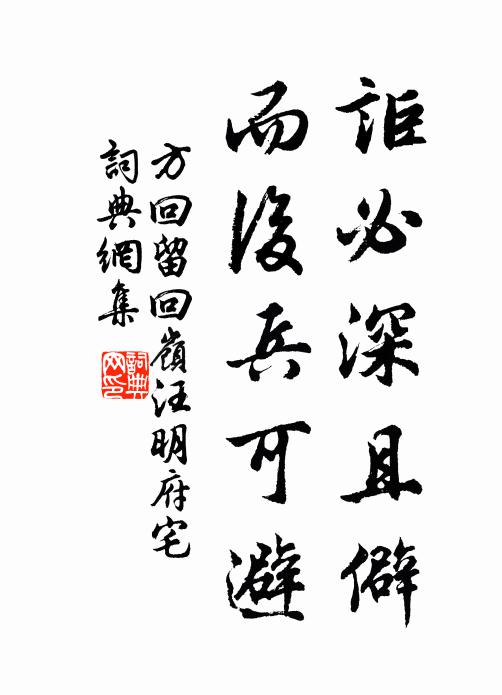 詎必深且僻
而後兵可避
方回留回嶺汪明府宅
詞典網集
詞典網印